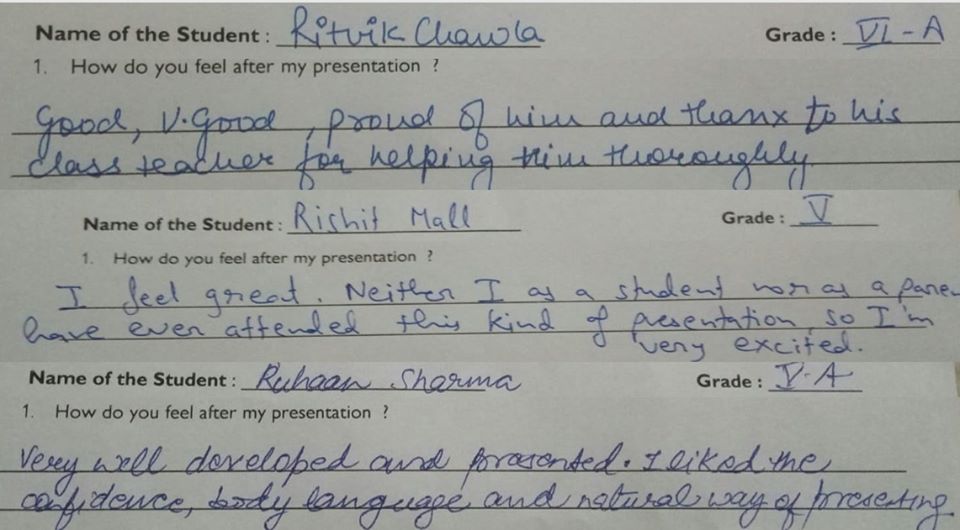 Name of the Student : Ritvik Chawla Grade : VI - A
1. How do you feel after my presentation ?
Good, V. Good , proud of him and thanx to his
class teacher for helping him thoroughly.
Name of the Student : Rishit Mall Grade : V
1. How do you feel after my presentation ?
I feel great. Neither I as a student nor as a paren
have ever attended this kind of presentation, so I'm
very excited.
Name of the Student : Ruhaan Sharma Grade : V-A
1. How do you feel after my presentation ?
Very well developed and presented. I liked the
confidence, body language and natural way of presenting.